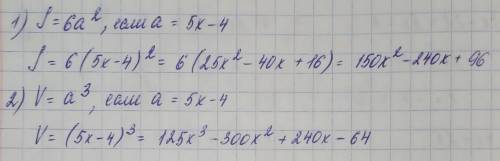 1) S = 6a², если a = 5x - 4
S = 6(5x - 4)² = 6(25x² - 40x + 16) = 150x² - 240x + 96
2) V = a³, если a = 5x - 4
V = (5x - 4)³ = 125x³ - 300x² + 240x - 64